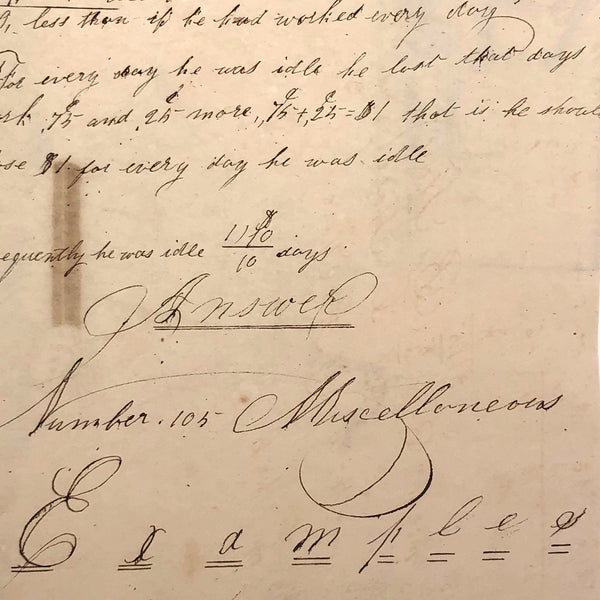 less than if he had worked every day
For every day he was idle he lost that days
ork ,75 and ,25 more, ,75 + ,25 = $1 that is he should
ose $1 for every day he was idle
equently he was idle 10 days
Answer
Number. 105 Miscellaneous
Examples